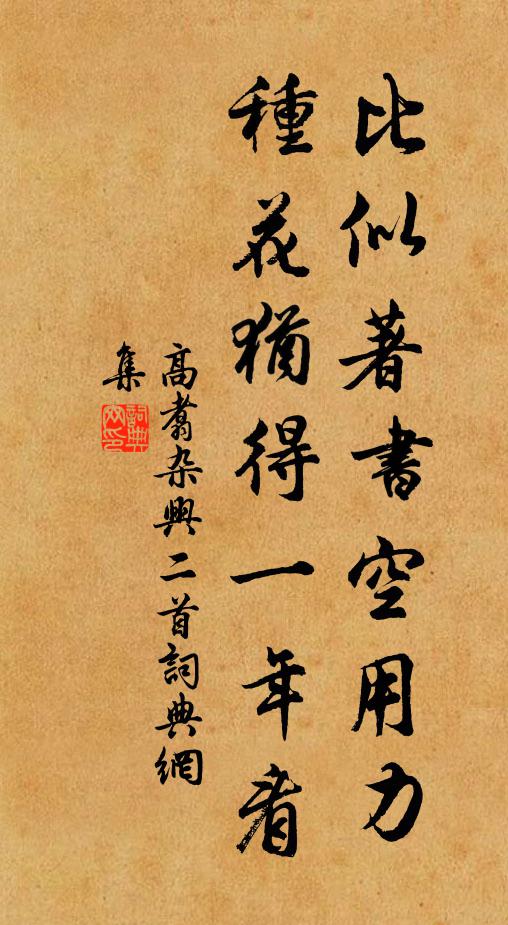 比似著書空用力
種花猶得一年看
高翥杂興二首詞典網
集
詞典
网印